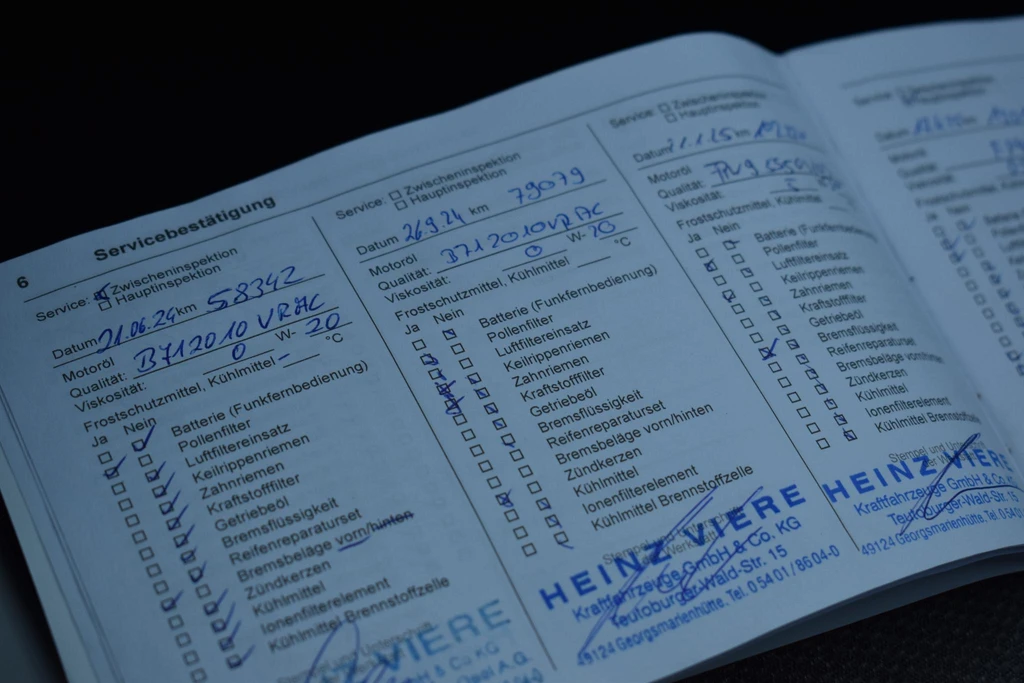 6
Servicebestätigung
Service: Zwischeninspektion
Hauptinspektion
Datum 21.06.24 km 58342
Motoröl
Qualität: B712010 VRAC
Viskosität: 0 W- 20
Frostschutzmittel, Kühlmittel °C
Ja Nein
Batterie (Funkfernbedienung)
Pollenfilter
Luftfiltereinsatz
Keilrippenriemen
Zahnriemen
Kraftstofffilter
Getriebeöl
Bremsflüssigkeit
Reifenreparaturset
Bremsbeläge vorn/hinten
Zündkerzen
Kühlmittel
Ionenfilterelement
Kühlmittel Brennstoffzelle
VIERE
& Co KG
Service: Zwischeninspektion
Hauptinspektion
Datum 26.9.24 km 79079
Motoröl
Qualität: B712010 VRAC
Viskosität: 0 W- 20
Frostschutzmittel, Kühlmittel °C
Ja Nein
Batterie (Funkfernbedienung)
Pollenfilter
Luftfiltereinsatz
Keilrippenriemen
Zahnriemen
Kraftstofffilter
Getriebeöl
Bremsflüssigkeit
Reifenreparaturset
Bremsbeläge vorn/hinten
Zündkerzen
Kühlmittel
Ionenfilterelement
Kühlmittel Brennstoffzelle
HEINZ VIERE
Kraftfahrzeuge GmbH & Co. KG
Teutoburger-Wald-Str. 15
49124 Georgsmarienhütte. Tel. 05401/8604-0
Service: Zwischeninspektion
Hauptinspektion
Datum 21.1.25 km
Motoröl
Qualität:
Viskosität:
Frostschutzmittel, Kühlmittel
Ja Nein
Batterie (Funkfernbedienung)
Pollenfilter
Luftfiltereinsatz
Keilrippenriemen
Zahnriemen
Kraftstofffilter
Getriebeöl
Bremsflüssigkeit
Reifenreparaturset
Bremsbeläge vorn/hinten
Zündkerzen
Kühlmittel
Ionenfilterelement
Kühlmittel Brennstoffzelle
HEINZ VIERE
Kraftfahrzeuge GmbH & Co.
Teutoburger-Wald-Str. 15
49124 Georgsmarienhütte. Tel.
Service:
Datum
Motoröl
Qualität
Ja Nein